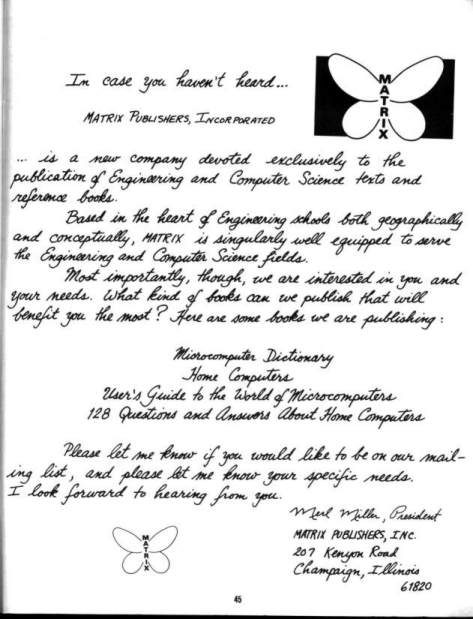 In case you haven't heard...
MATRIX
MATRIX PUBLISHERS, INCORPORATED
... is a new company devoted exclusively to the
publication of Engineering and Computer Science texts and
reference books.
Based in the heart of Engineering schools both geographically
and conceptually, MATRIX is singularly well equipped to serve
the Engineering and Computer Science fields.
Most importantly, though, we are interested in you and
your needs. What kind of books can we publish that will
benefit you the most? Here are some books we are publishing:
Microcomputer Dictionary
Home Computers
User's Guide to the World of Microcomputers
128 Questions and Answers About Home Computers
Please let me know if you would like to be on our mail-
ing list, and please let me know your specific needs.
I look forward to hearing from you.
Merl Miller, President
MATRIX PUBLISHERS, INC.
207 Kenyon Road
Champaign, Illinois
61820
MATRIX
45